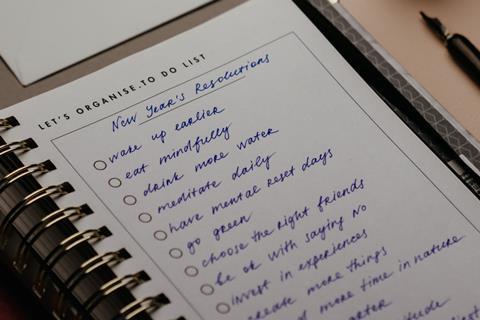 LET'S ORGANISE.TO DO LIST
New Year's Resolutions
wake up earlier
eat mindfully
drink more water
meditate daily
have mental reset days
go green
choose the right friends
be ok with saying NO
invest in experiences
create more things
more time in nature